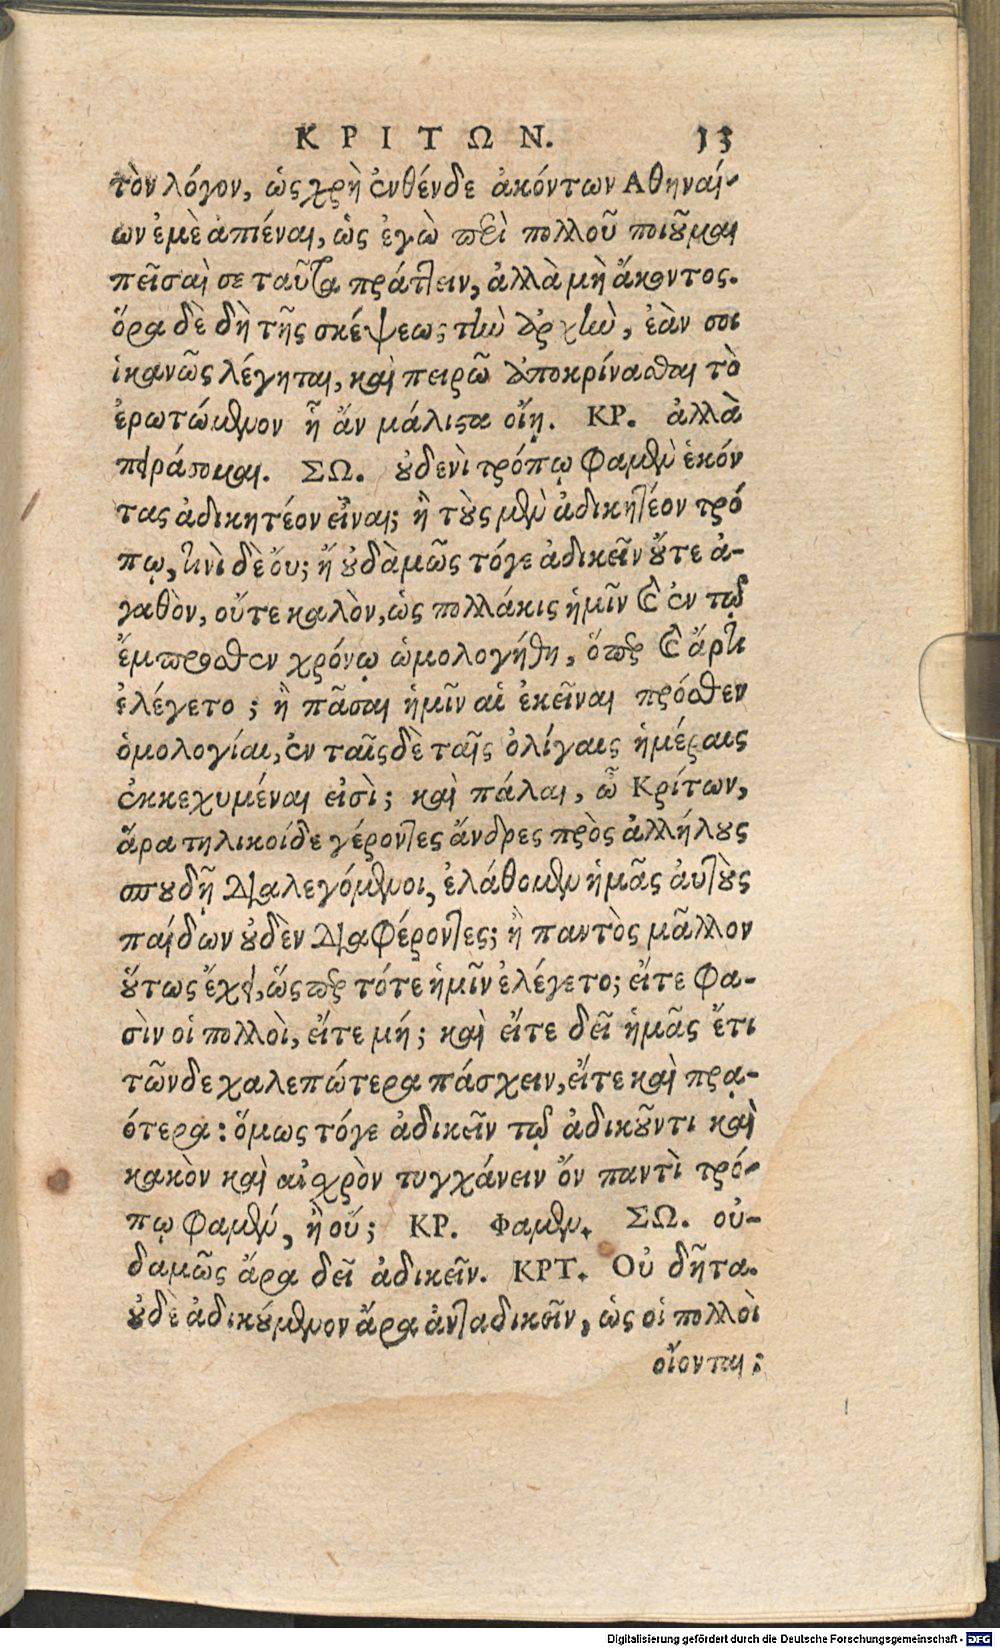 ΚΡΙΤΩΝ. 13
τὸν λόγον, ὡς χρὴ ἐνθένδε ἀκόντων Αθηναί-
ων ἐμὲ ἀπιέναι, ὡς ἐγὼ περὶ πολλοῦ ποιοῦμαι
πεῖσαί σε ταῦτα πράττειν, ἀλλὰ μὴ ἄκοντος.
ὅρα δὲ δὴ τῆς σκέψεως τὴν ἀρχὴν, ἐάν σοι
ἱκανῶς λέγηται, καὶ πειρῶ ἀποκρίνασθαι τὸ
ἐρωτώμενον ᾗ ἄν μάλιστα οἴῃ. ΚΡ. ἀλλὰ
πειράσομαι. ΣΩ. οὐδενὶ τρόπῳ φαμὲν ἑκόν
τας ἀδικητέον εἶναι; ἢ τοὺς μὲν ἀδικητέον τρό
πῳ, τινὶ δὲ ὄυ; ἢ οὐδὰμῶς τόγε ἀδικεῖν οὔτε ἀ-
γαθὸν, οὔτε καλὸν, ὡς πολλάκις ἡμῖν καὶ ἐν τῷ
ἔμπροσθεν χρόνῳ ὡμολογήθη, ὅπερ καὶ ἄρτι
ἐλέγετο; ἢ πᾶσαι ἡμῖν αἱ ἐκεῖναι πρόσθεν
ὁμολογίαι, ἐν ταῖςδε ταῖς ὀλίγαις ἡμέραις
ἐκκεχυμέναι εἰσὶ; καὶ πάλαι, ὦ Κρίτων,
ἄρα τηλικοίδε γέροντες ἄνδρες πρὸς ἀλλήλους
σπουδῇ διαλεγόμενοι, ἐλάθομεν ἡμᾶς ἀυτοὺς
παίδων οὐδὲν διαφέροντες; ἢ παντὸς μᾶλλον
οὕτως ἔχει, ὥςπερ τότε ἡμῖν ἐλέγετο; εἴτε φα-
σὶν οἱ πολλοὶ, εἴτε μή; καὶ εἴτε δεῖ ἡμᾶς ἔτι
τῶνδε χαλεπώτερα πάσχειν, εἴτε καὶ πρᾳ-
ότερα: ὅμως τόγε ἀδικεῖν τῷ ἀδικοῦντι καὶ
κακὸν καὶ αἰσχρὸν τυγχάνειν ὂν παντὶ τρό-
πῳ φαμέν, ἢ οὔ; ΚΡ. Φαμέν. ΣΩ. οὐ-
δαμῶς ἄρα δεῖ ἀδικεῖν. ΚΡΤ. Οὐ δῆτα.
οὐδὲ ἀδικούμενον ἄρα ἀνταδικεῖν, ὡς οἱ πολλοὶ
οἴονται;
Digitalisierung gefördert durch die Deutsche Forschungsgemeinschaft - DFG